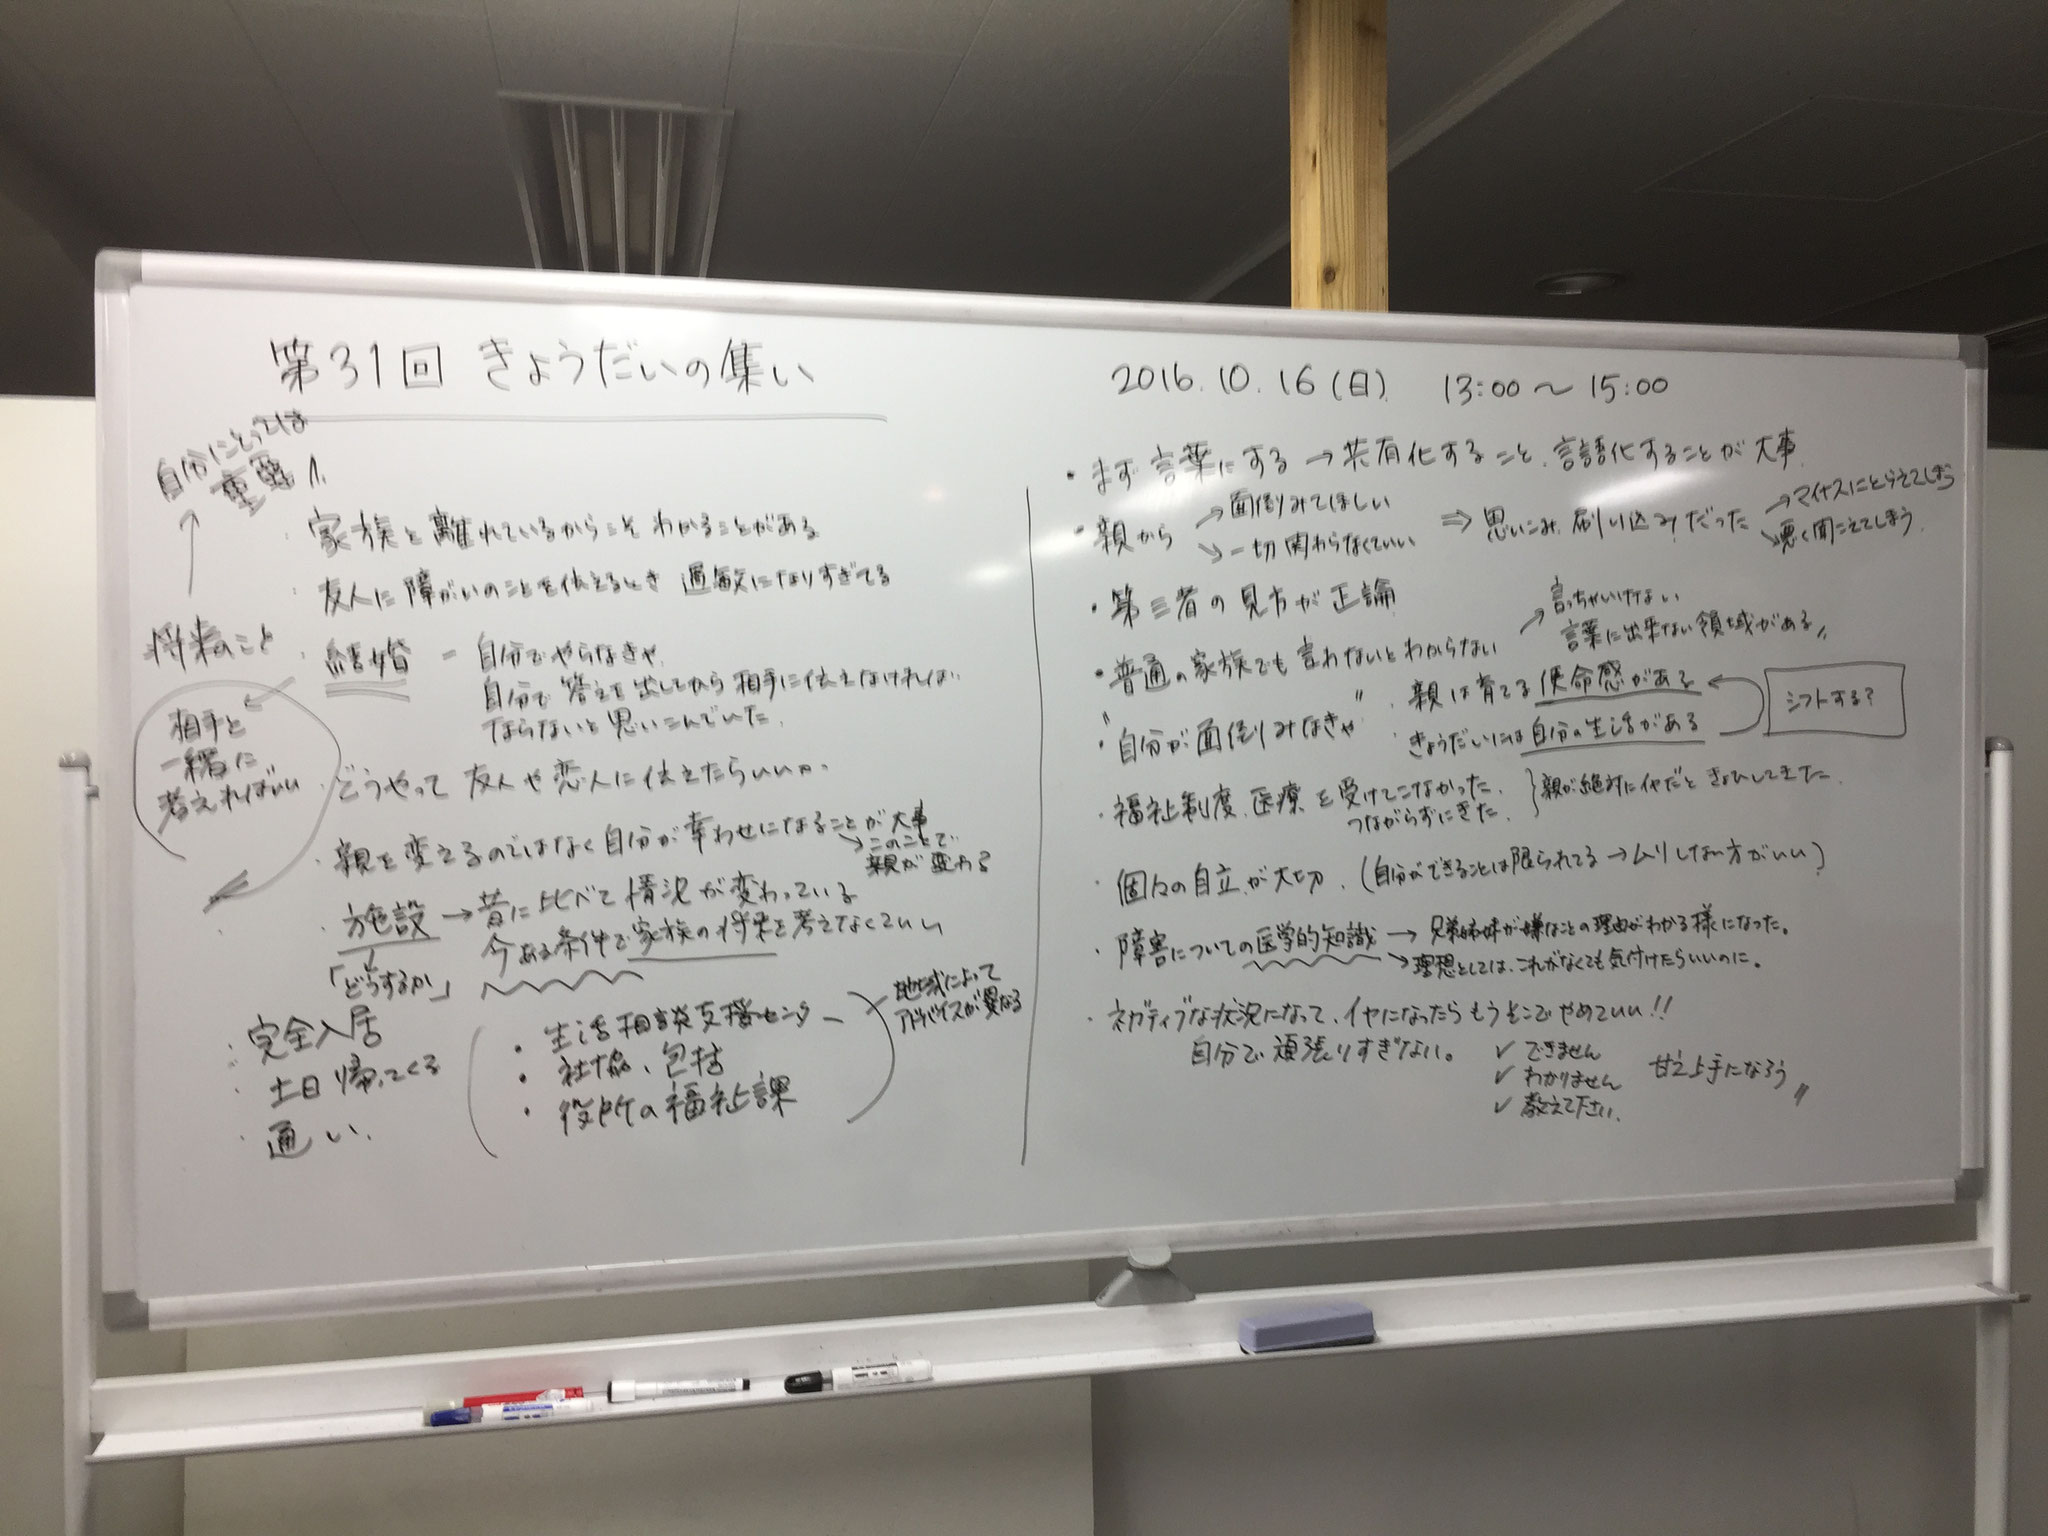 第31回 きょうだいの集い
2016.10.16(日) 13:00〜15:00
自分にとっては
重要!
・家族と離れているからこそわかることがある
・友人に障がいのことを伝えるとき 過敏になりすぎてる
将来のこと
・結婚 - 自分でやらなきゃ
自分で答えを出してから相手に伝えなければ
ならないと思いこんでいた.
相手と
一緒に
考えればいい
・どうやって友人や恋人に伝えたらいいか.
・親を変えるのではなく自分が幸わせになることが大事
→このことで
親が変わる
・施設→昔に比べて情況が変わっている
今ある条件で家族の将来を考えなくていい
「どうするか」
・完全入居
・土日帰ってくる
・通い.
・生活相談支援センター
・社協、包括
・役所の福祉課
地域によって
アドバイスが異なる
・まず言葉にする→共有化すること、言語化することが大事.
・親から
→面倒みてほしい
→一切関わらなくていい
⇒思いこみ、刷り込みだった
→マイナスにとらえてしまう
→悪く聞こえてしまう.
・第三者の見方が正論
・普通の家族でも言わないとわからない
→言っちゃいけない
言葉に出来ない領域がある〃
・"自分が面倒みなきゃ"
・親は育てる使命感がある
・きょうだいには自分の生活がある
シフトする?
・福祉制度、医療を受けてこなかった.
つながらずにきた.
}親が絶対にイヤだときょひしてきた.
・個々の自立が大切.(自分ができることは限られてる→ムリしない方がいい)
・障害についての医学的知識→兄弟姉妹が嫌なことの理由がわかる様になった。
→理想としては、これがなくても気付けたらいいのに。
・ネガティブな状況になって、イヤになったらもうそこでやめていい!!
自分で頑張りすぎない。
✓できません
✓わかりません
✓教えて下さい.
甘え上手になろう〃